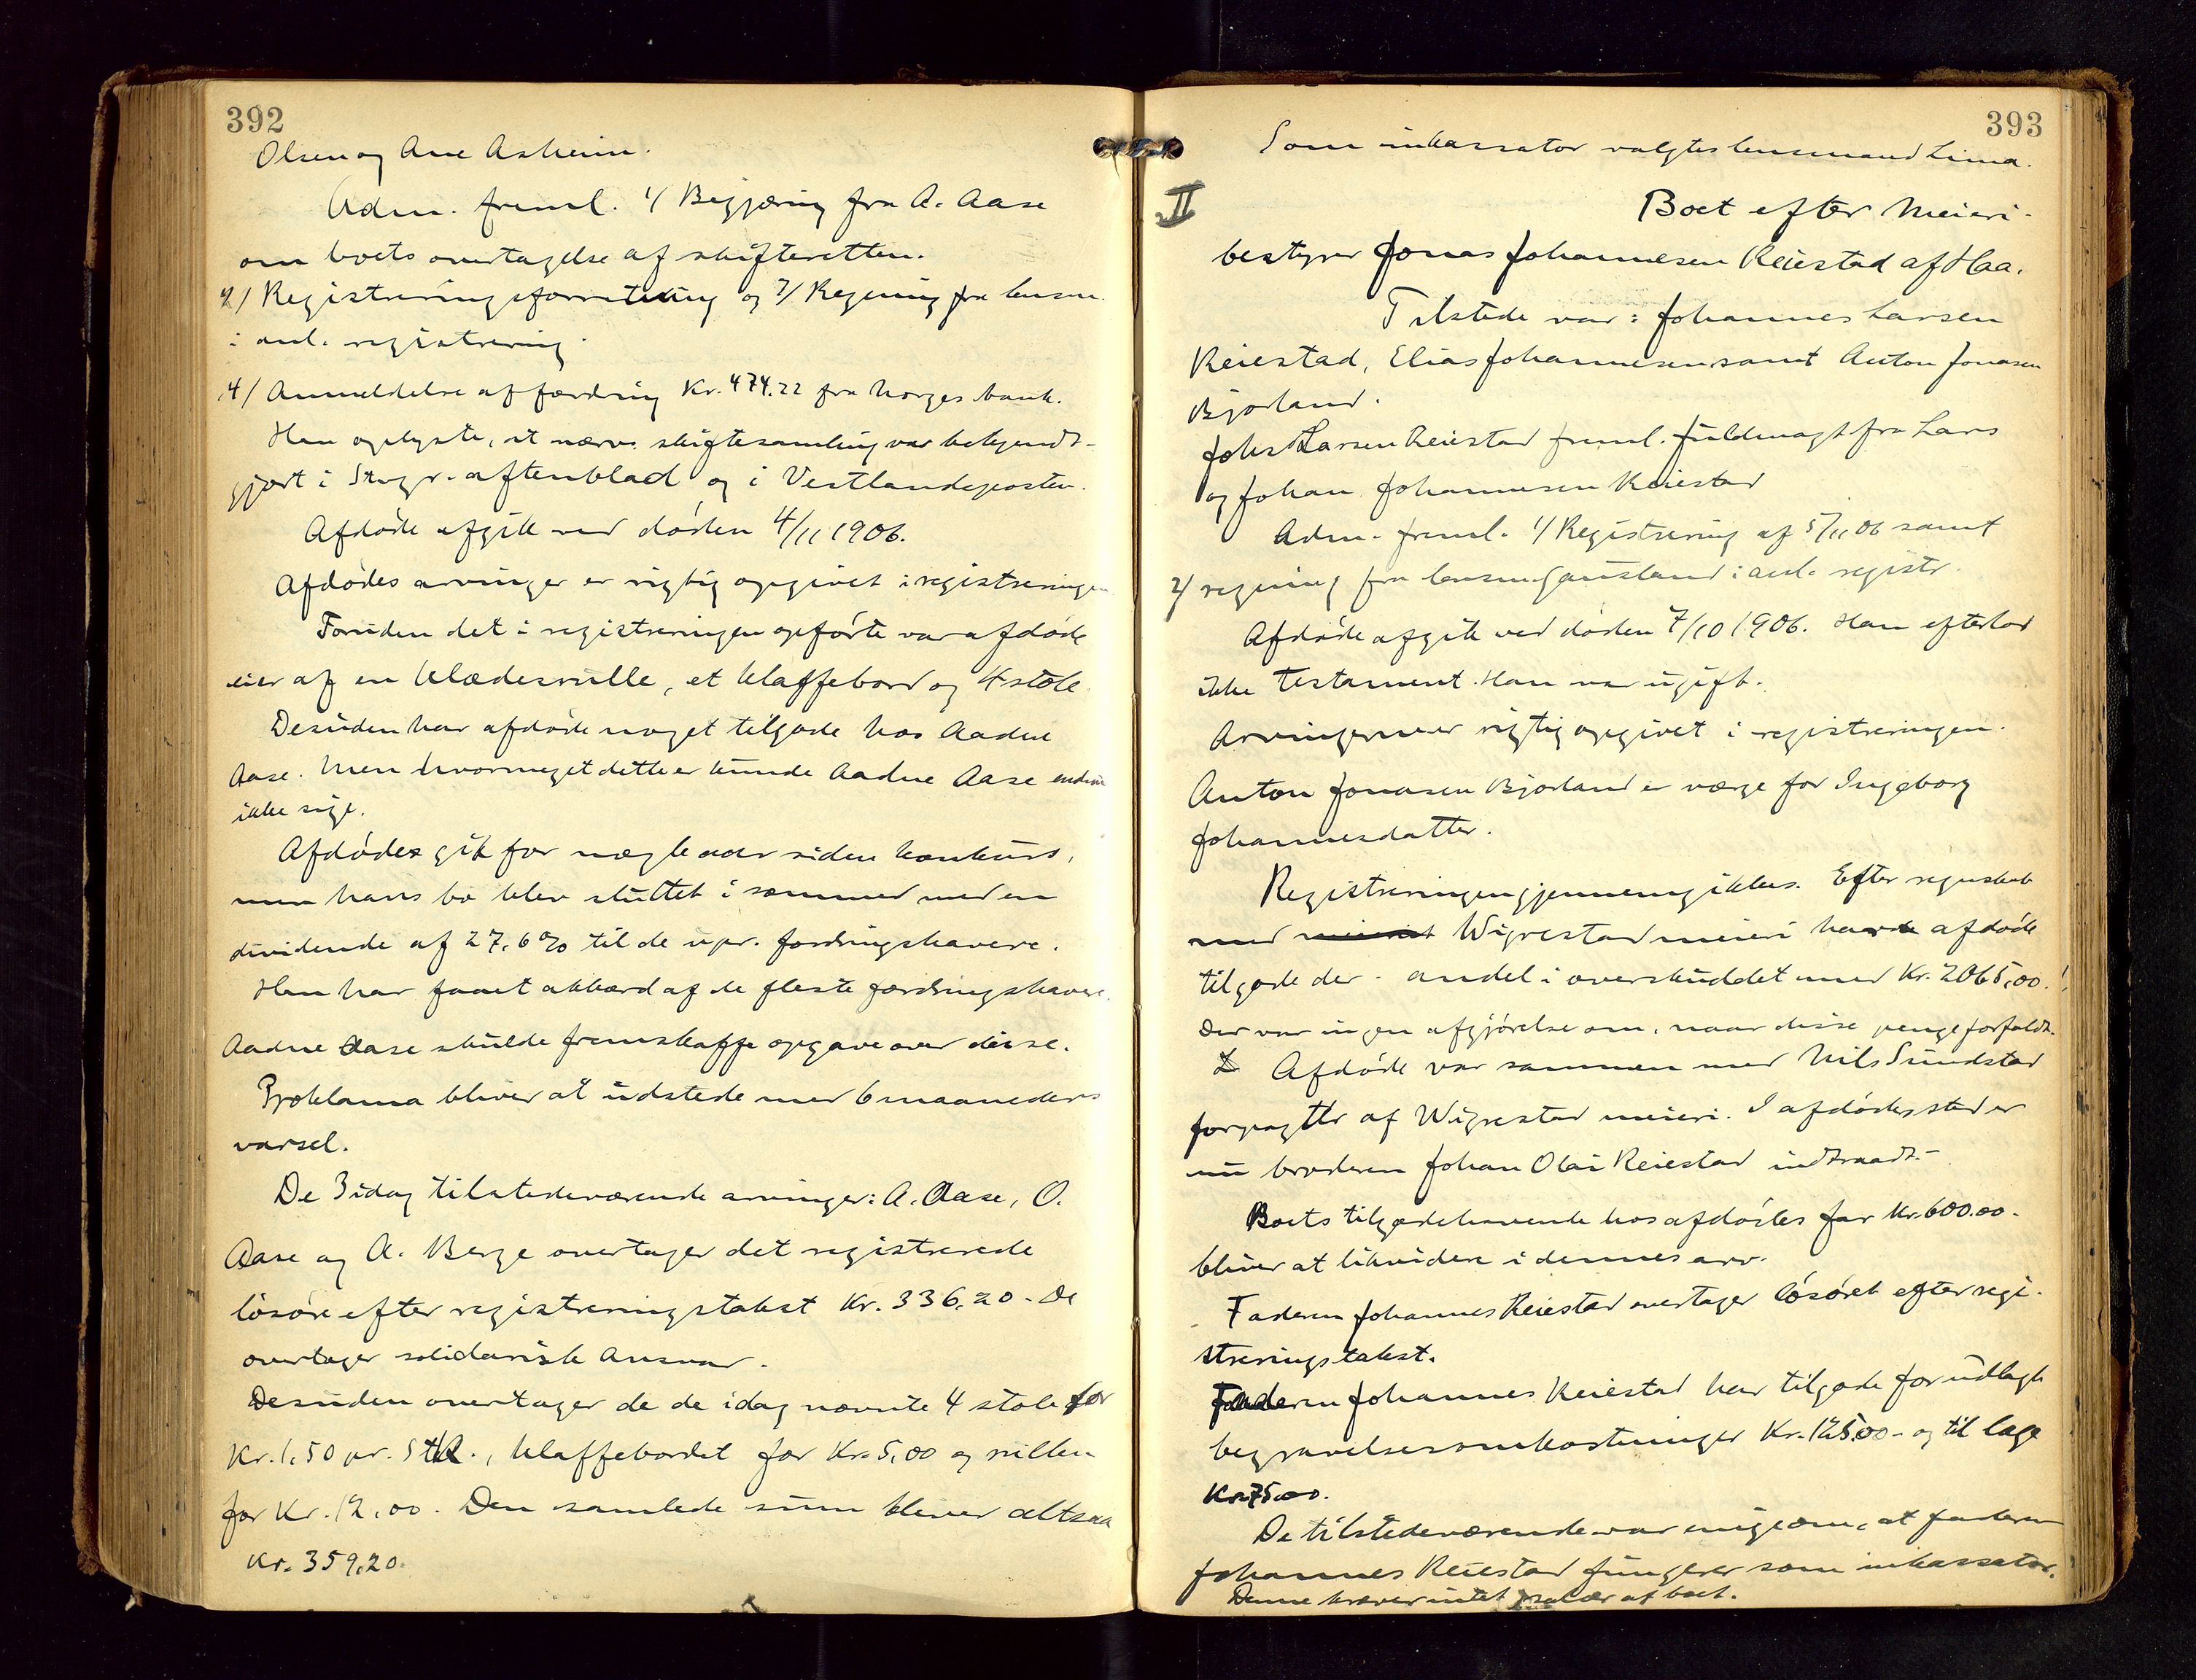 392
Olsen og Ane Asheim.
Adm. freml. 1/ Begjæring fra A. Aase
om boets overtagelse af skifteretten.
2/ Registreringsforretning og 3/ Regning fra lensm.
i anl. registrering.
4/ Anmeldelse af fordring Kr. 474.22 fra Norges bank.
Han oplyste, at nærv. skiftesamling var bekjendt-
gjort i Stvgr. aftenblad og i Vestlandsposten.
Afdøde afgik ved døden 4/11 1906.
Afdødes arvinger er rigtig opgivet i registreringen
Foruden det i registreringen opførte var afdøde
eier af en klædesrulle, et klaffebord og 4 stole.
Desuden har afdøde noget tilgode hos Aadne
Aase. Men hvormeget dette er kunde Aadne Aase endnu
ikke sige.
Afdøde gik for nogle aar siden konkurs,
men hans bo blev sluttet i sommer med en
dividende af 27,6 % til de upr. fordringshavere.
Han har faaet akkord af de fleste fordringshavere.
Aadne Aase skulde fremskaffe opgave over disse.
Proklama bliver at udstede med 6 maaneders
varsel.
De 3 idag tilstedeværende arvinger: A. Aase, O.
Aase og A. Berge overtager det registrerede
løsøre efter registreringstakst Kr. 336,20. De
overtager solidarisk ansvar.
Desuden overtager de de idag nævnte 4 stole for
Kr. 1,50 pr. Stk., klaffebordet for Kr. 5,00 og rullen
for Kr. 12,00. Den samlede sum bliver altsaa
Kr. 359,20.
393
Som inkassator valgtes lensmand Lima.
II
Boet efter Meieri-
bestyrer Jonas Johannesen Reiestad af Haa.
Tilstede var: Johannes Larsen
Reiestad, Elias Johannesen samt Anton Jonasen
Bjorland.
Johs Larsen Reiestad freml. fuldmagt fra Lars
og Johan Johannesen Reiestad
Adm. freml. 1/ Registrering af 5/11 06 samt
2/ regning fra lensm. Gausland i anl. registr.
Afdøde afgik ved døden 7/10 1906. Han efterlod
ikke Testament. Han var ugift.
Arvingerne er rigtig opgivet i registreringen.
Anton Jonasen Bjorland er værge for Ingeborg
Johannesdatter.
Registreringen gjennemgikkes. Efter regnskab
med meieriet Wigrestad meieri havde afdøde
tilgode der - andel i overskuddet med Kr. 2065,00.
Der var ingen afgjørelse om, naar disse penge forfaldt.
Afdøde var sammen med Nils Sundstad
forpagter af Wigrestad meieri. I afdødes sted er
nu broderen Johan Olai Reiestad indtraadt.
Boets tilgodehavende hos afdødes far Kr. 600.00.
bliver at likvidere i dennes arv.
Faderen Johannes Reiestad overtager løsøret efter regi-
streringstakst.
Faderen Johannes Reiestad har tilgode for udlagte
begravelsesomkostninger Kr. 125.00 - og til læge
Kr. 75.00.
De tilstedeværende var enige om, at faderen
Johannes Reiestad fungerer som inkassator.
Denne kræver intet salær af boet.